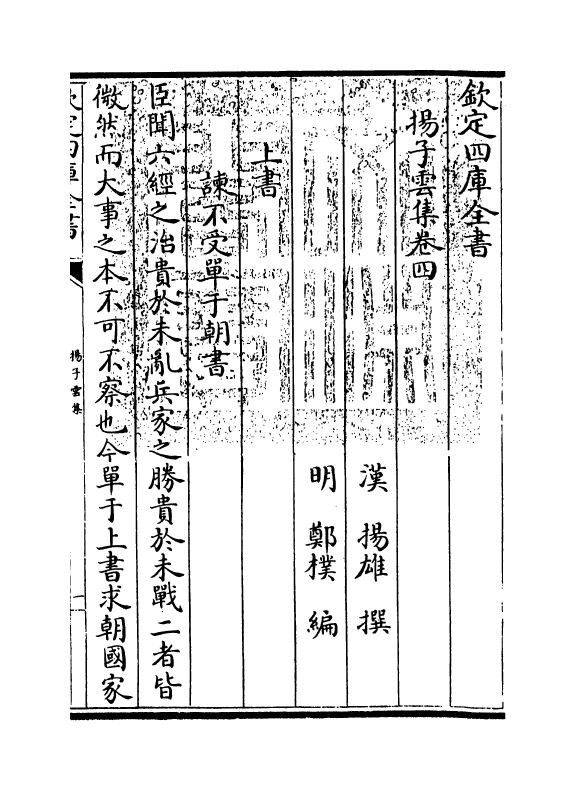 欽定四庫全書
揚子雲集卷四
漢 揚雄 撰
明 鄭樸 編
上書
諫不受單于朝書
臣聞六經之治貴於未亂兵家之勝貴於未戰二者皆
微然而大事之本不可不察也今單于上書求朝國家
欽定四庫全書
揚子雲集